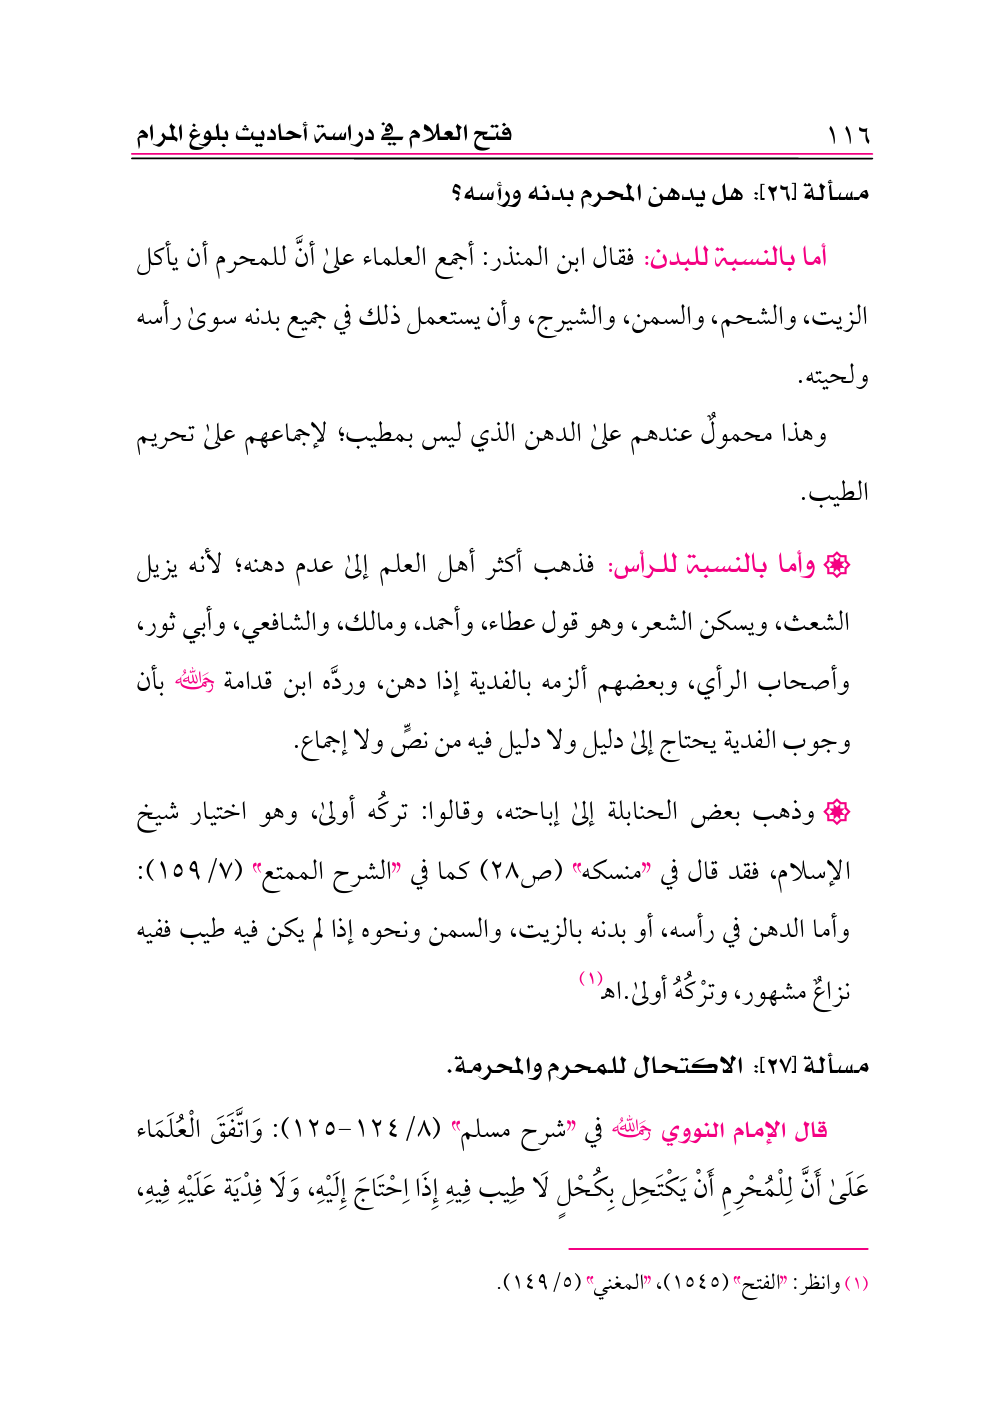 ١١٦
فتح العلام في دراسة أحاديث بلوغ المرام
مسألة [٢٦]: هل يدهن المحرم بدنه ورأسه؟
أما بالنسبة للبدن: فقال ابن المنذر: أجمع العلماء علىٰ أنَّ للمحرم أن يأكل
الزيت، والشحم، والسمن، والشيرج، وأن يستعمل ذلك في جميع بدنه سوىٰ رأسه
ولحيته.
وهذا محمولٌ عندهم علىٰ الدهن الذي ليس بمطيب؛ لإجماعهم علىٰ تحريم
الطيب.
وأما بالنسبة للرأس: فذهب أكثر أهل العلم إلىٰ عدم دهنه؛ لأنه يزيل
الشعث، ويسكن الشعر، وهو قول عطاء، وأحمد، ومالك، والشافعي، وأبي ثور،
وأصحاب الرأي، وبعضهم ألزمه بالفدية إذا دهن، وردَّه ابن قدامة رحمه الله بأن
وجوب الفدية يحتاج إلىٰ دليل ولا دليل فيه من نصٍّ ولا إجماع.
وذهب بعض الحنابلة إلىٰ إباحته، وقالوا: تركُه أولىٰ، وهو اختيار شيخ
الإسلام، فقد قال في "منسكه" (ص٢٨) كما في "الشرح الممتع" (٧/ ١٥٩):
وأما الدهن في رأسه، أو بدنه بالزيت، والسمن ونحوه إذا لم يكن فيه طيب ففيه
نزاعٌ مشهور، وترْكُهُ أولىٰ.اهـ(١)
مسألة [٢٧]: الاكتحال للمحرم والمحرمة.
قال الإمام النووي رحمه الله في "شرح مسلم" (٨/ ١٢٤-١٢٥): وَاتَّفَقَ الْعُلَمَاء
عَلَىٰ أَنَّ لِلْمُحْرِمِ أَنْ يَكْتَحِل بِكُحْلٍ لَا طِيب فِيهِ إِذَا اِحْتَاجَ إِلَيْهِ، وَلَا فِدْيَة عَلَيْهِ فِيهِ،
(١) وانظر: "الفتح" (١٥٤٥)، "المغني" (٥/ ١٤٩).